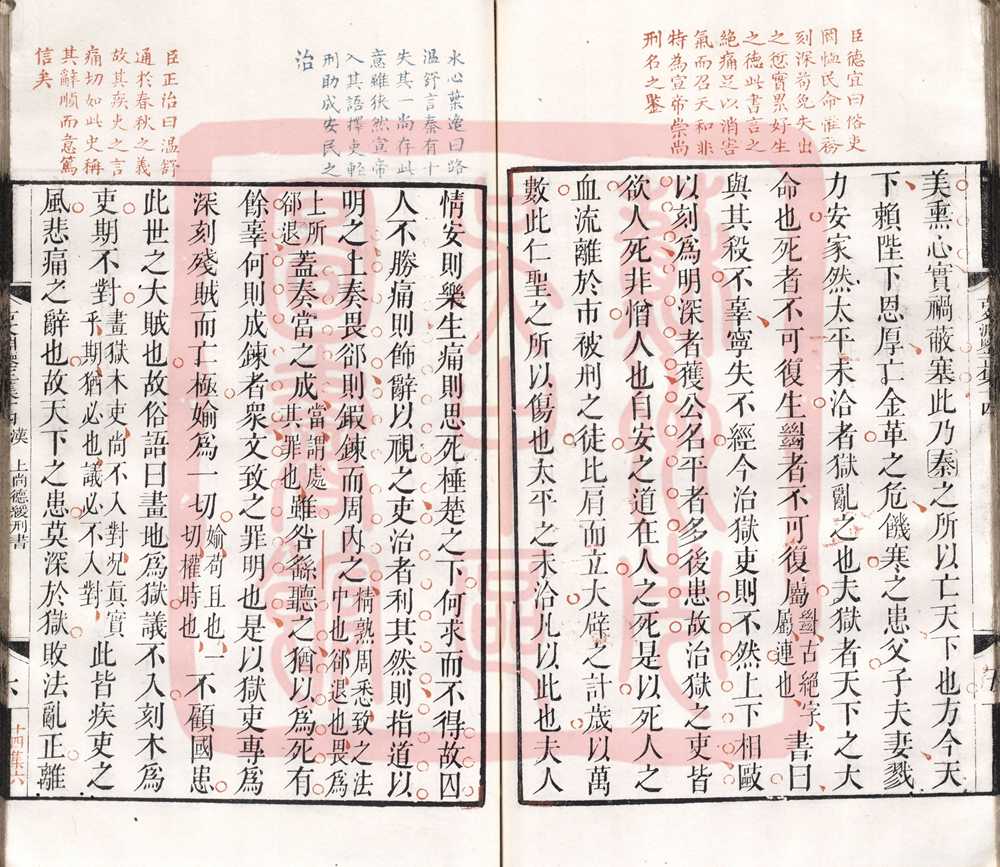 臣德宜曰俗吏
罔恤民命惟務
刻深苟免失出
之愆實累好生
之德此書言之
絕痛足以消害
氣而召天和非
特為宣帝崇尚
刑名之鑒
美熏心實禍蔽塞此乃秦之所以亡天下也方今天
下賴陛下恩厚亡金革之危饑寒之患父子夫妻戮
力安家然太平未洽者獄亂之也夫獄者天下之大
命也死者不可復生㡭者不可復屬㡭古絕字屬連也書曰
與其殺不辜寧失不經今治獄吏則不然上下相敺
以刻爲明深者獲公名平者多後患故治獄之吏皆
欲人死非憎人也自安之道在人之死是以死人之
血流離於市被刑之徒比肩而立大辟之計歲以萬
數此仁聖之所以傷也太平之未洽凡以此也夫人
水心葉適曰路
溫舒言秦有十
失其一尚存此
意雖狹然宣帝
入其語擇吏輕
刑助成安民之
治
臣正治曰溫舒
通於春秋之義
故其疾吏之言
痛切如此史稱
其辭順而意篤
信矣
情安則樂生痛則思死棰楚之下何求而不得故囚
人不勝痛則飾辭以視之吏治者利其然則指道以
明之上奏畏郤則鍛鍊而周內之精熟周悉致之法中也郤退也畏爲
上所郤退蓋奏當之成當謂處其罪也雖咎繇聽之猶以爲死有
餘辜何則成鍊者衆文致之罪明也是以獄吏專爲
深刻殘賊而亡極媮爲一切媮苟且也一切權時也不顧國患
此世之大賊也故俗語曰畫地爲獄議不入刻木爲
吏期不對畫獄木吏尚不入對况眞實乎期猶必也議必不入對此皆疾吏之
風悲痛之辭也故天下之患莫深於獄敗法亂正離
漢
上尚德緩刑書
十四集六